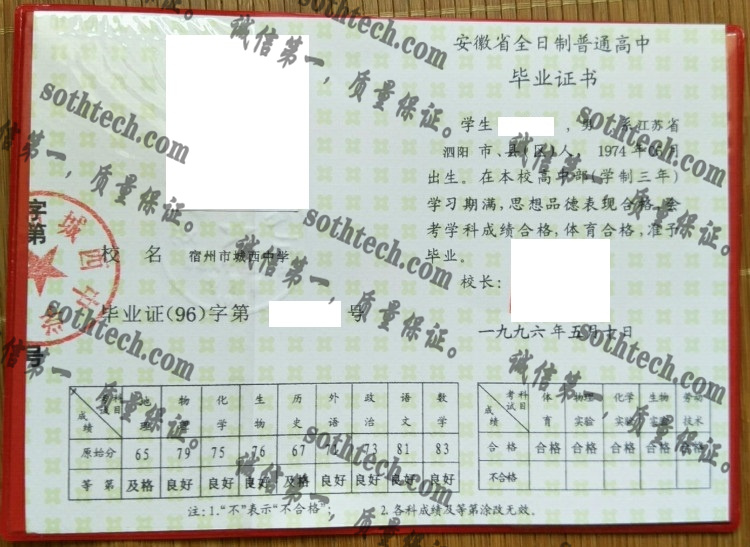 安徽省全日制普通高中
毕业证书
学生 ，男 系江苏省
泗阳 市、县(区)人，1974年06月
出生。在本校高中部(学制三年)
学习期满，思想品德表现合格，会
考学科成绩合格，体育合格，准予
毕业。
校长：
一九九六年五月十日
校 名 宿州市城西中学
毕业证(96)字第 号
字第
号
城西中学
考试科目 成绩 地理 物理 化学 生物 历史 外语 政治 语文 数学
原始分 65 79 75 76 67 73 81 83
等第 及格 良好 良好 良好 及格 良好 良好 良好 良好
考试科目 成绩 体育 物理实验 化学实验 生物实验 劳动技术
合格 合格 合格 合格 合格 合格
不合格
注:1.“不”表示“不合格”; 2.各科成绩及等第涂改无效。
诚信第一，质量保证。
sothtech.com
诚信第一，质量保证。
sothtech.com
诚信第一，质量保证。
sothtech.com
诚信第一，质量保证。
sothtech.com
诚信第一，质量保证。
sothtech.com
诚信第一，质量保证。
sothtech.com
诚信第一，质量保证。